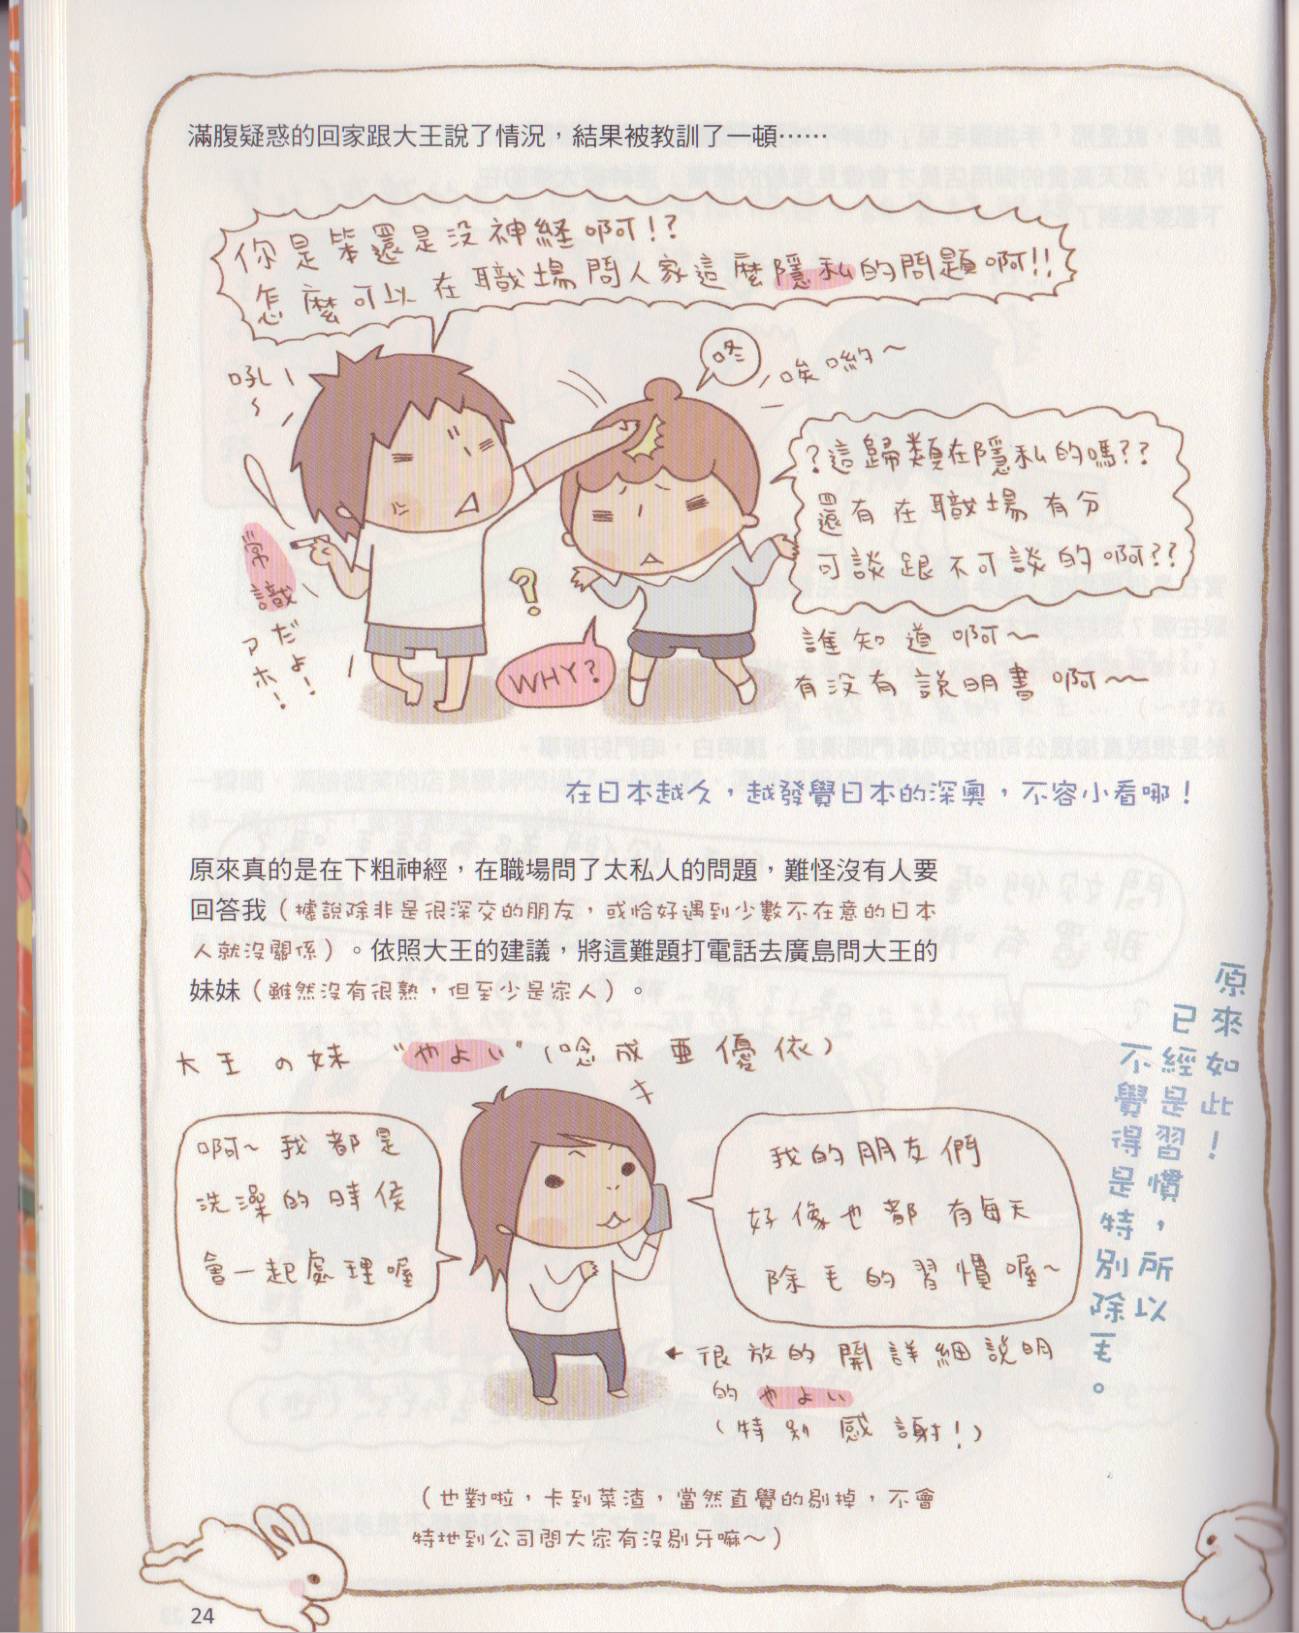 滿腹疑惑的回家跟大王說了情況，結果被教訓了一頓……
你是笨還是没神経啊!?
怎麼可以在職場問人家這麼隱私的問題啊!!
吼~
咚
唉喲~
?這歸類在隱私的嗎??
還有在職場有分
可談跟不可談的啊??
常識だよ!
アホ!
WHY?
誰知道啊~
有没有説明書啊~~
在日本越久，越發覺日本的深奧，不容小看哪！
原來真的是在下粗神經，在職場問了太私人的問題，難怪沒有人要
回答我（據說除非是很深交的朋友，或恰好遇到少數不在意的日本
人就沒關係）。依照大王的建議，將這難題打電話去廣島問大王的
妹妹（雖然沒有很熟，但至少是家人）。
大王の妹"やよい"(唸成亜優依)
啊~我都是
洗澡的時候
會一起處理喔
我的朋友們
好像也都有每天
除毛的習慣喔~
原來如此！
已經是習慣，所以
不覺得是特別除毛。
←很放的開詳細說明
的やよい
(特別感謝!)
（也對啦，卡到菜渣，當然直覺的剔掉，不會
特地到公司問大家有沒剔牙嘛～）
24